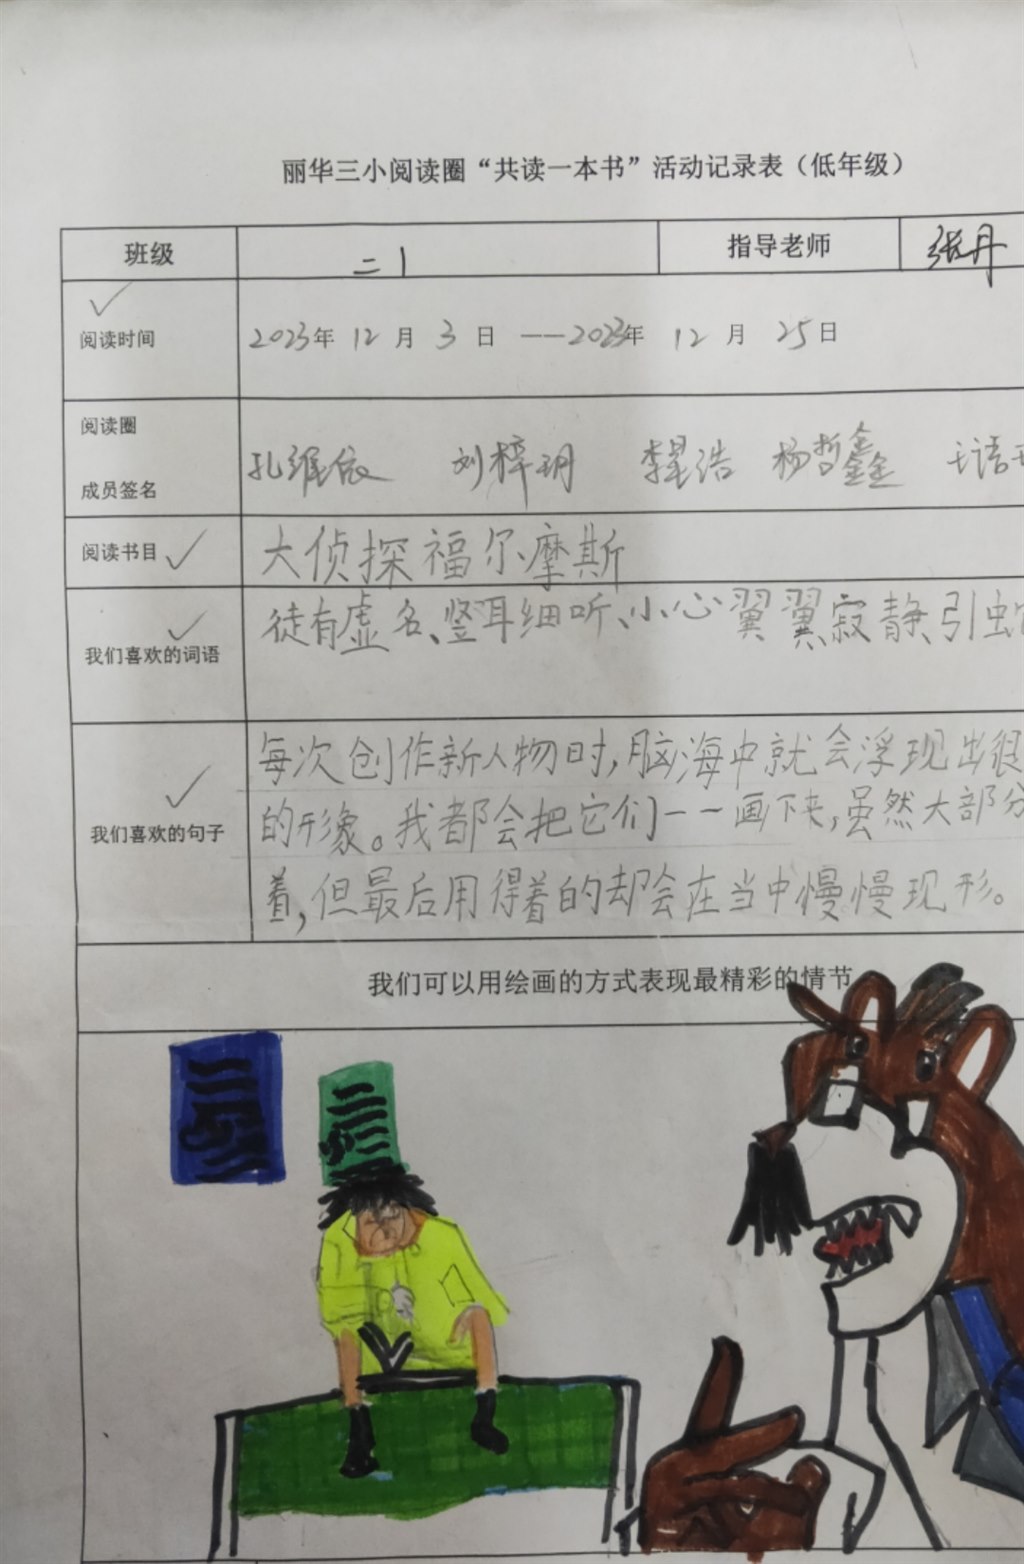 丽华三小阅读圈“共读一本书”活动记录表（低年级）
班级 二1 指导老师 张丹
阅读时间 2023年 12月 3日 ——2023年 12月 25日
阅读圈
成员签名 孔维依 刘梓玥 李星浩 杨哲鑫 王语
阅读书目 大侦探福尔摩斯
我们喜欢的词语 徒有虚名、竖耳细听、小心翼翼、寂静、引蛇
每次创作新人物时,脑海中就会浮现出很
我们喜欢的句子 的形象。我都会把它们一一画下来,虽然大部分
着,但最后用得着的却会在当中慢慢现形。
我们可以用绘画的方式表现最精彩的情节